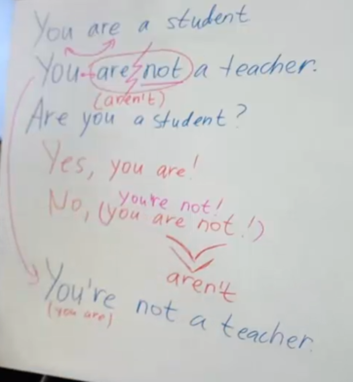 You are a student
You are not a teacher.
(aren't)
Are you a student?
Yes, you are!
you're not!
No, (you are not!)
aren't
You're not a teacher.
(you are)